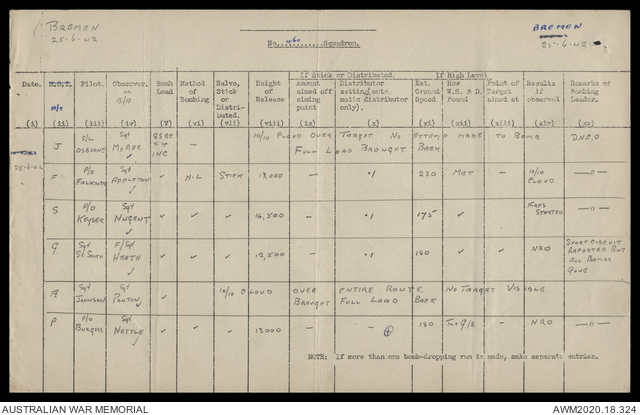 BREMEN
25-6-42
BREMEN
25-6-42
No. 460 Squadron.
If Stick or Distributed. If High Level
Date. M.R.T. Pilot. Observer. Bomb Method Salvo, Height Amount Distributor Est. How Point of Results Remarks of
A/c or Load of Stick of aimed off setting (auto Ground W.S. & D. Target if Bombing
B/A Bombing or Release aiming matic distributor Speed Found aimed at observed Leader.
Distri- point only).
buted.
(i) (ii) (iii) (iv) (V) (vi) (vii) (viii) (ix) (x) (xi) (xii) (xiii) (xiv) (xv)
J S/L OSBORNE Sgt McRAE 10/10 CLOUD OVER TARGET NO ATTEMPT MADE TO BOMB D.N.C.O
x4 INC FULL LOAD BROUGHT BACK.
25-6-42 F P/O FALKINER Sgt APPLETON ✓ H-L STICK 13,000 — ·1 230 MRT — 10/10 CLOUD — " —
S P/O KEYSER Sgt NUGENT ✓ ✓ ✓ 16,500 — ·1 175 ✓ ✓ FIRES STARTED — " —
G Sgt F/Sgt HEATH ✓ ✓ ✓ 12,500 — ·1 180 ✓ ✓ NRO SHORT CIRCUIT REPORTED BUT ALL BOMBS GONE
A Sgt JOHNSON Sgt 10/10 CLOUD OVER ENTIRE ROUTE. NO TARGET VISIBLE
BROUGHT FULL LOAD BACK
P P/O BURGESS Sgt NETTLE ✓ ✓ ✓ 13000 — 180 — NRO — " —
NOTE: If more than one bomb-dropping run is made, make separate entries.
AUSTRALIAN WAR MEMORIAL
AWM2020.18.324